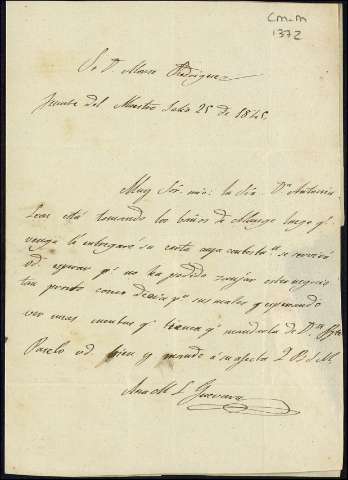 CM-M
1372
Sr. Dn. Marco Rodriguez
Fuente del Maestre Julio 25 de 1845
Muy Sor. mio: la Sra. Da. Antonia
Leas está tomando los baños de Alange luego qe.
venga le entregaré su carta cuya contestn. se servirá
vd. esperar pr. no ha podido zanjar este negocio
tan pronto como decia pr. sus males y esperando
ver unas cuentas qe. tienen qe. mandarla de
Páselo vd. bien y mande á su afecta Q B S M.
Ana M L Guevara